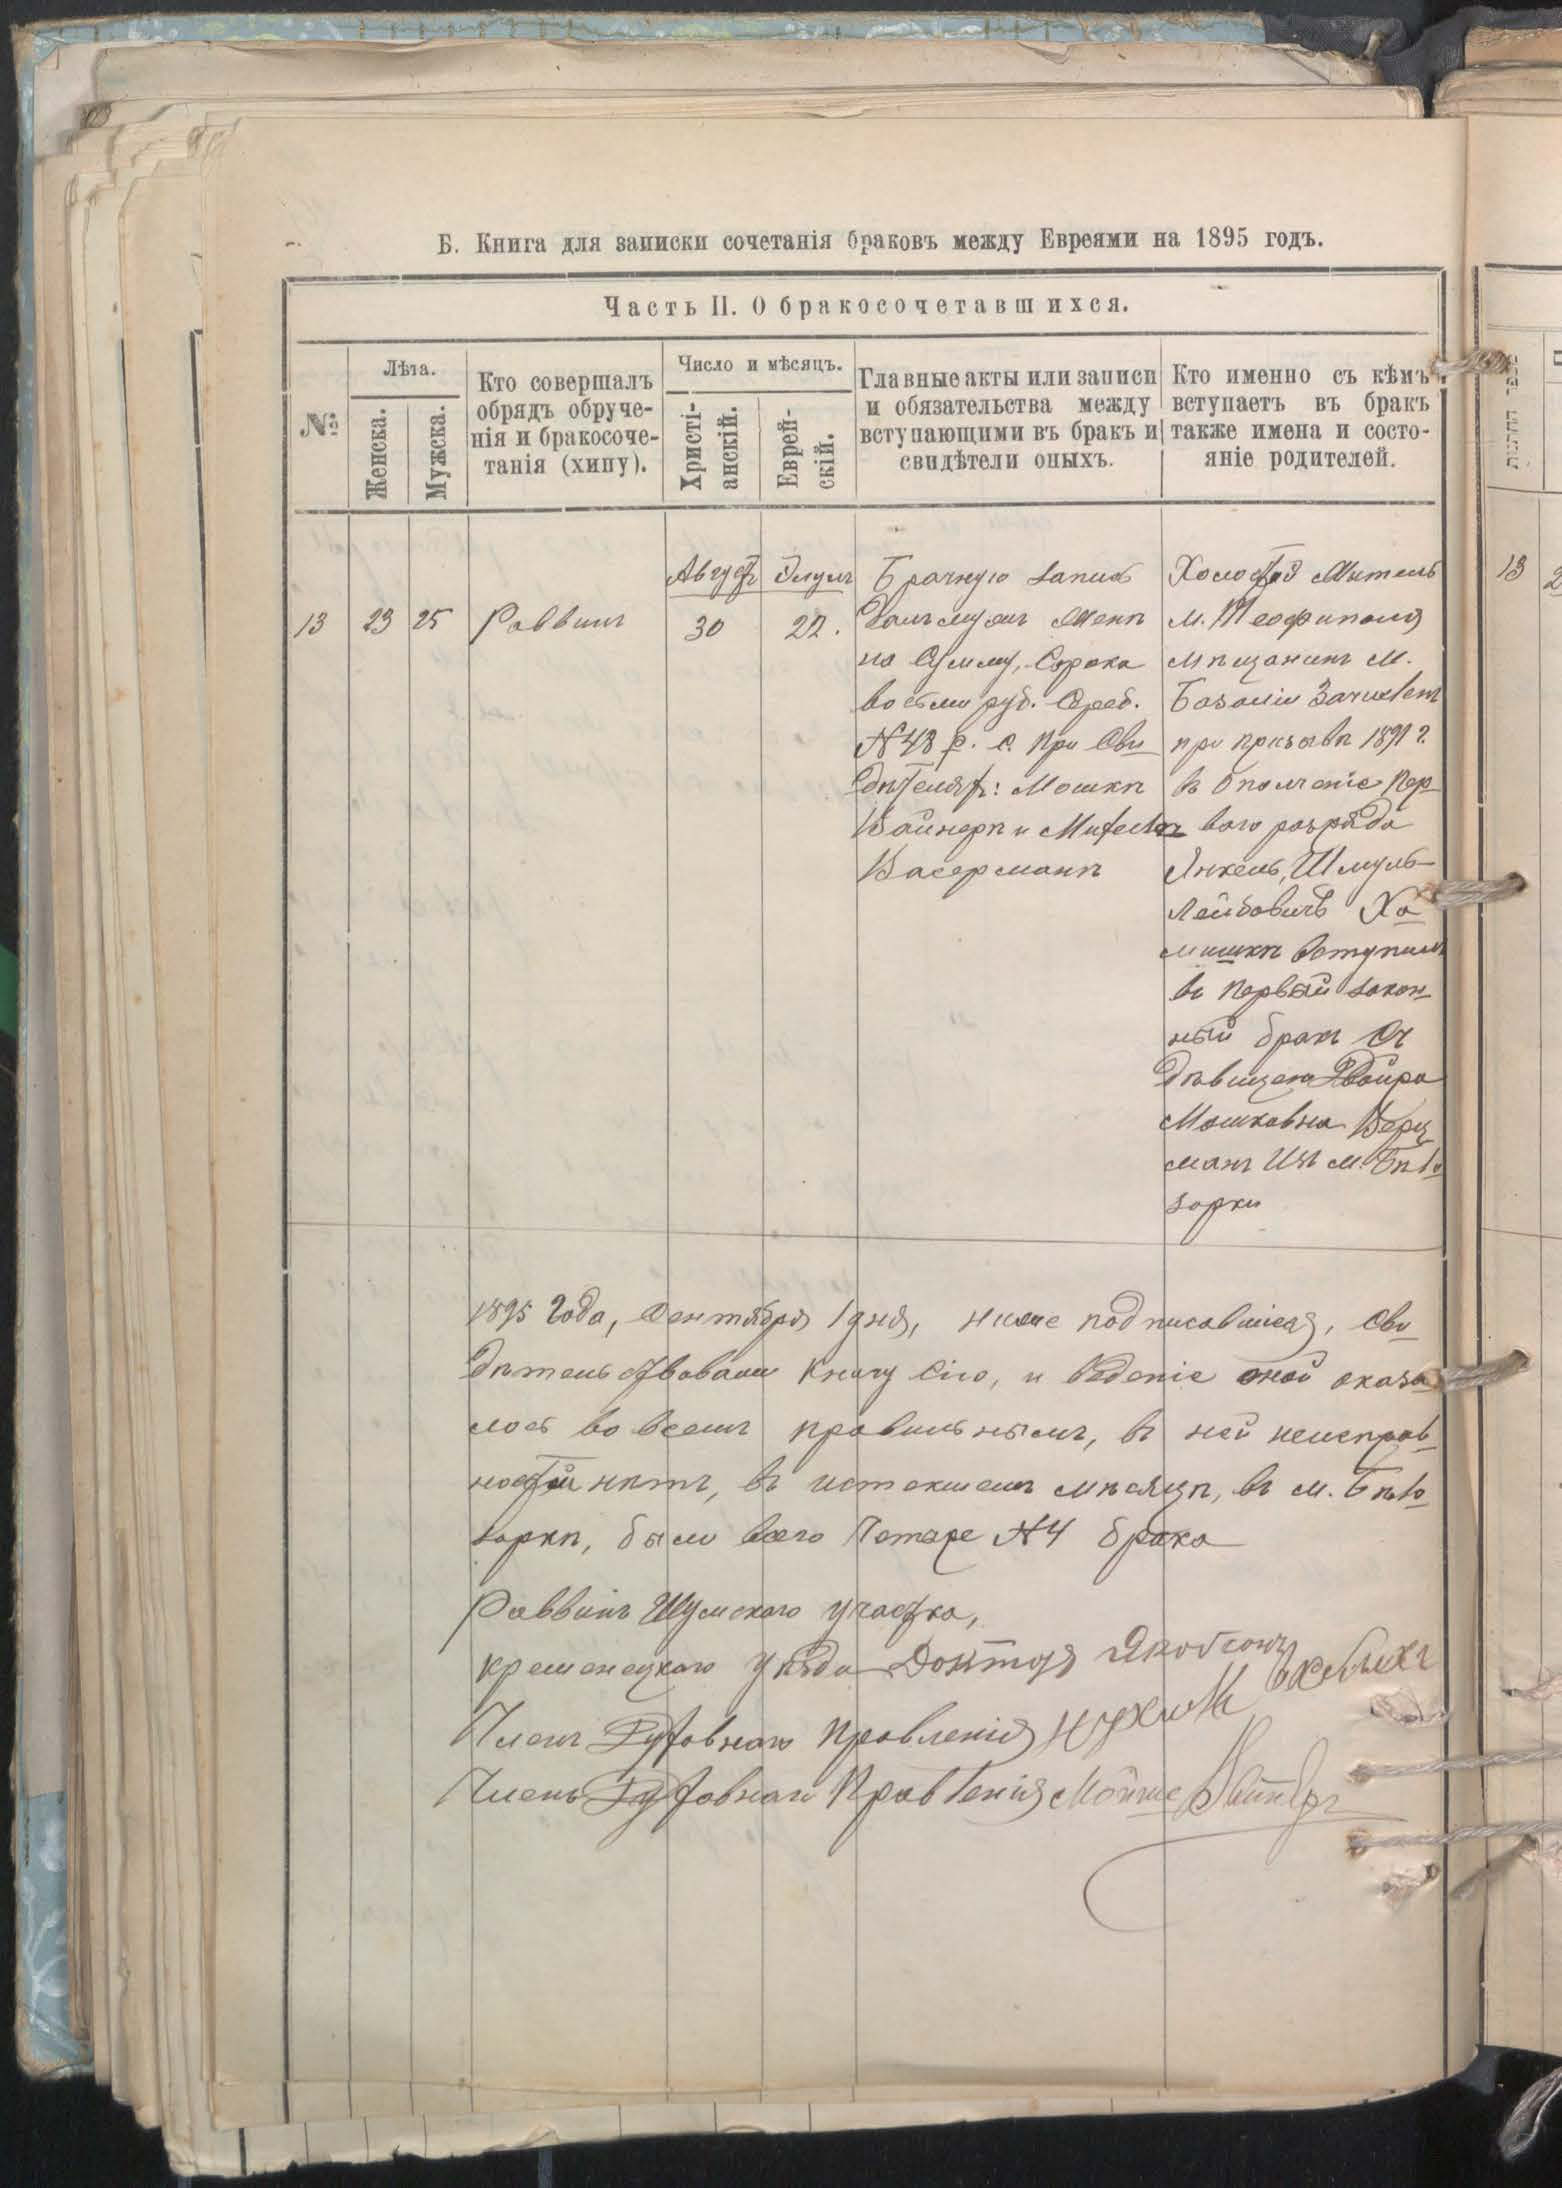 Б. Книга для записки сочетанія браковъ между Евреями на 1895 годъ.
Часть II. О бракосочетавшихся.
№
Лѣта.
Женска.
Мужска.
Кто совершалъ
обрядъ обруче-
нія и бракосоче-
танія (хипу).
Число и мѣсяцъ.
Христі-
анскій.
Еврей-
скій.
Главные акты или записи
и обязательства между
вступающими въ бракъ и
свидѣтели оныхъ.
Кто именно съ кѣмъ
вступаетъ въ бракъ
также имена и состо-
яніе родителей.
13
23
25
Раввинъ
Августъ
30
Элулъ
22.
Брачную запись
Далъ мужъ женѣ
на Сумму, Сорока
восьми руб. Сереб.
№ 48 р. с. При Сви
дѣтеляхъ: Мошкѣ
Вайнерѣ и
Васерманѣ
Холостой Житель
м. Теофиполя
мѣщанинъ м.
Базаліи Зачисленъ
при призывѣ 1891 г.
въ ополченіе пер
ваго разряда
Янкель, Шмуль-
Лейбовичъ Хо
мишкъ вступилъ
въ первый закон
ный бракъ Съ
Дѣвицею Двойра
Мошковна Верц
манъ Изъ м. Бѣло
зорки
1895 Года, Сентября 1 дня, ниже подписавшіеся, Сви
дѣтельствовали Книгу Сію, и веденіе оной оказа
лось во всемъ правильнымъ, въ ней неисправ
ностей нѣтъ, въ истекшемъ мѣсяцѣ, въ м. Бѣло
зоркѣ, было всего Четыре № 4 брака
Раввинъ Шумскаго участка,
кременецкаго уѣзда Докторъ Якобсонъ
Членъ Духовнаго Правленія Нухим
Членъ Духовнаго Правленія Мойше Вайнеръ
13